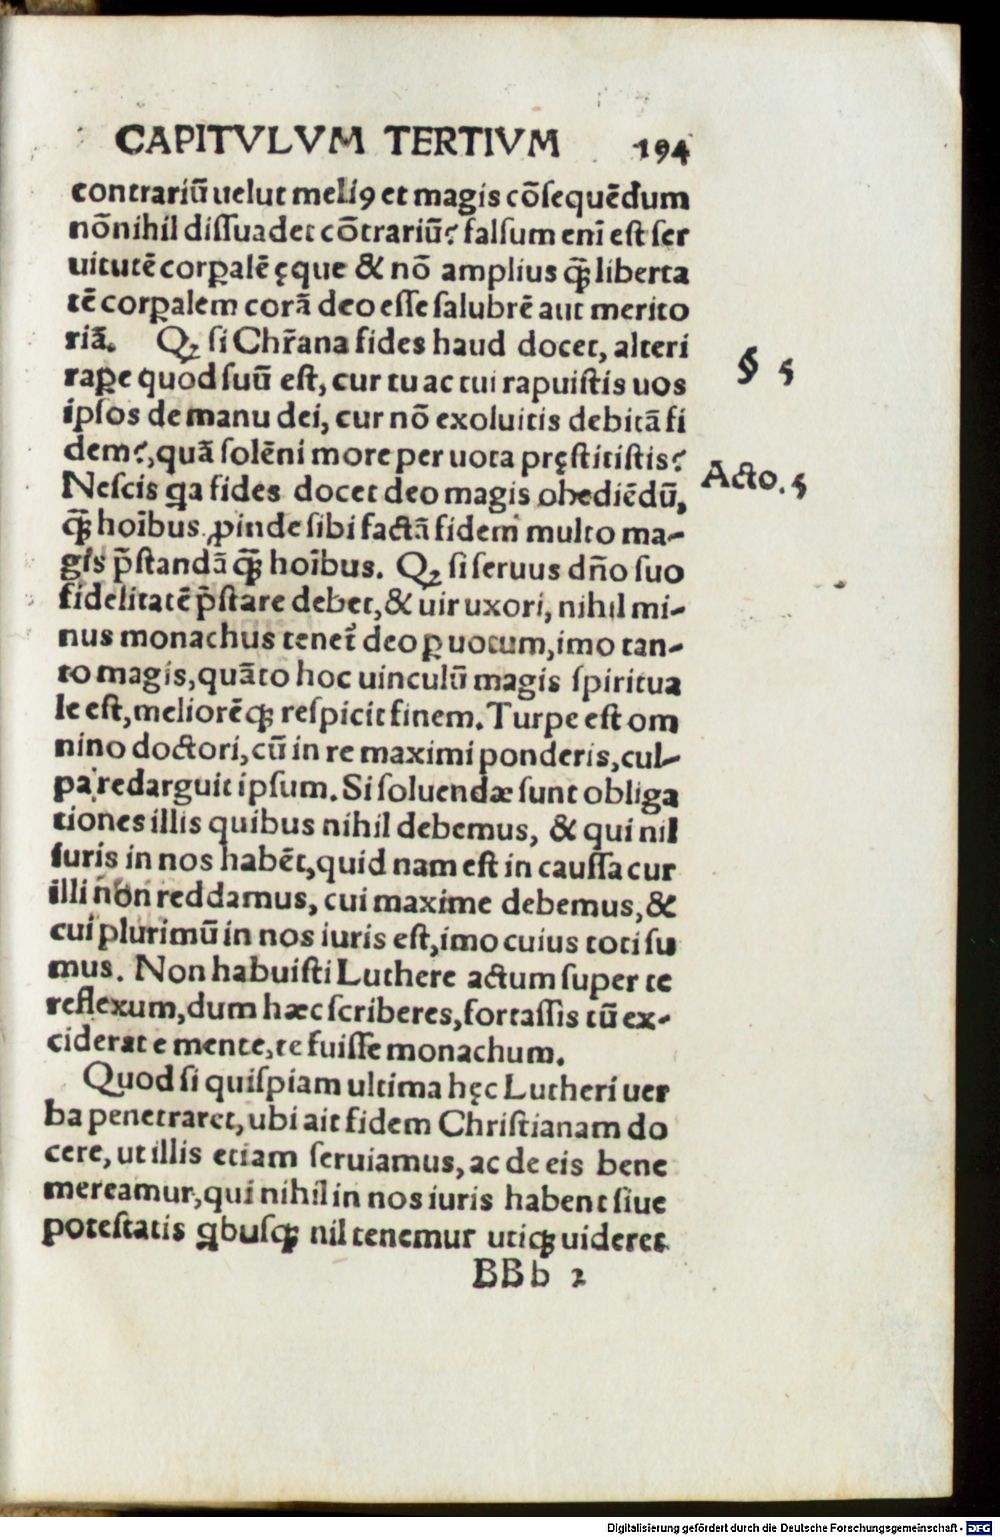 CAPITVLVM TERTIVM 194
contrariũ uelut meliꝰ et magis cõsequẽdum
nõnihil dissuadet cõtrariũ? falsum enĩ est ser
uitutẽ corꝑalẽ ęque & nõ amplius ꝙ̃ liberta
tẽ corꝑalem corã deo esse salubrẽ aut merito
riã. Qꝫ si Chr̃ana fides haud docet, alteri
raꝑe quod suũ est, cur tu ac tui rapuistis uos
ipsos de manu dei, cur nõ exoluitis debitã fi
dem?, quã solẽni more per uota pręstitistis?
Nescis ꝗa fides docet deo magis obediẽdũ,
ꝙ̃ hoĩbus, ꝓinde sibi factã fidem multo ma-
gis p̃standã ꝙ̃ hoĩbus. Qꝫ si seruus dño suo
fidelitatẽ p̃stare debet, & uir uxori, nihil mi-
nus monachus tenet̃ deo ꝑ uotum, imo tan-
to magis, quãto hoc uinculũ magis spiritua
le est, meliorẽqꝫ respicit finem. Turpe est om
nino doctori, cũ in re maximi ponderis, cul-
pa redarguit ipsum. Si soluendæ sunt obliga
tiones illis quibus nihil debemus, & qui nil
iuris in nos habẽt, quid nam est in caussa cur
illi non reddamus, cui maxime debemus, &
cui plurimũ in nos iuris est, imo cuius toti su
mus. Non habuisti Luthere actum super te
reflexum, dum hæc scriberes, fortassis tũ ex-
ciderat e mente, te fuisse monachum.
Quod si quispiam ultima hęc Lutheri uer
ba penetraret, ubi ait fidem Christianam do
cere, ut illis etiam seruiamus, ac de eis bene
mereamur, qui nihil in nos iuris habent siue
potestatis ꝗbusqꝫ nil tenemur utiqꝫ uideret
BBb 2
§ 5
Acto. 5
Digitalisierung gefördert durch die Deutsche Forschungsgemeinschaft - DFG